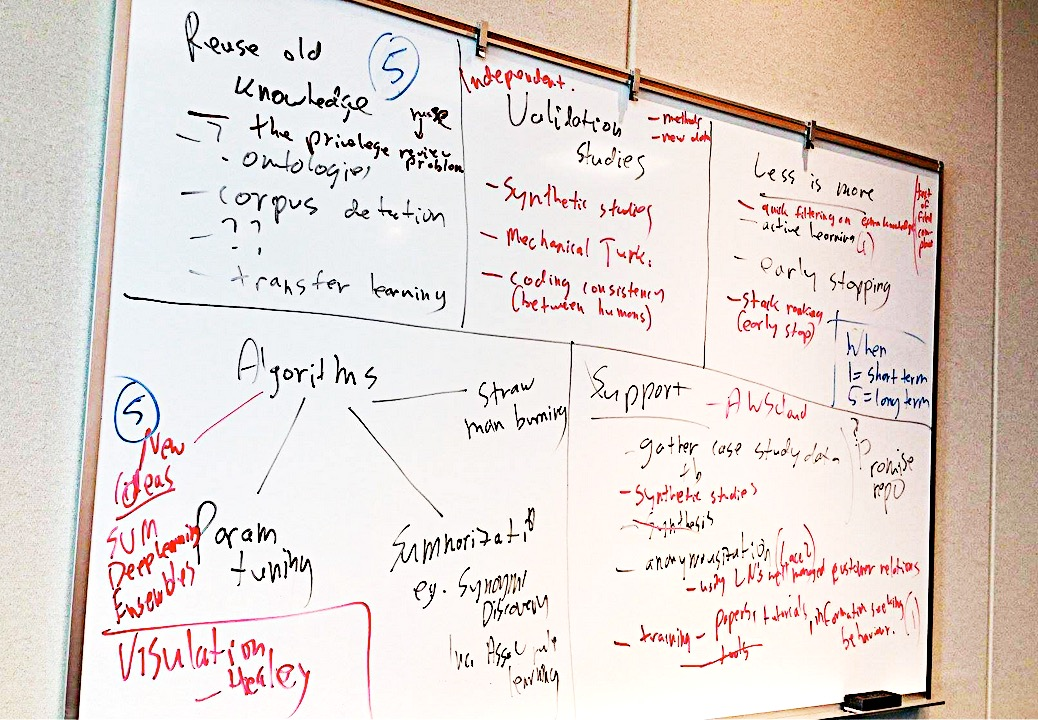 Reuse old
5
Knowledge
reuse
- ? the privalege review
problem
. ontologies
- corpus detection
- ? ?
?
- transfer learning
Independent.
Validation
Studies
- methods
- new data
- Synthetic studies
- Mechanical Turk.
- coding consistency
(between humons)
Less is more
- quick filtering on
- active learning
- early stopping
- stack ranking
(early stop)
test
of
When
1 = short term
5 = long term
Algorithms
straw
man burning
5
New
ideas
SUM
Deeplearning
Ensembles
Param
tuning
Summorizati
eg. Synonym
Discovery
learning
Visulation
- Healey
Support
- AWSland
- gather case study data
?
promise
repo
- Synthetic studies
- synthesis
- anonymousization
- using LN's well managed customer relations
- training - papers, tutorials, information seeking
behaviour. (1)
tools